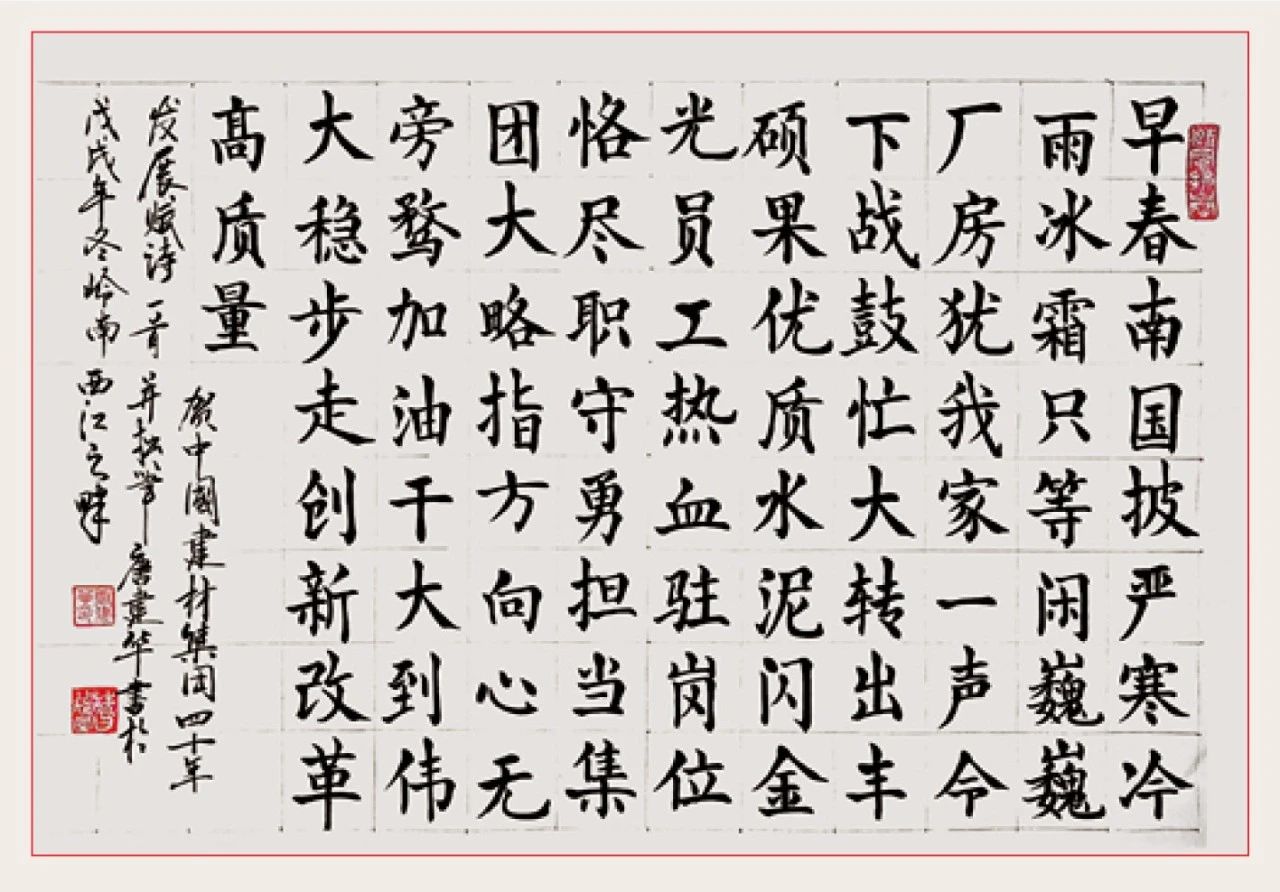 早春南国披严寒冷
雨冰霜只等闲巍巍
厂房犹我家一声令
下战鼓忙大转出丰
硕果优质水泥闪金
光员工热血驻岗位
恪尽职守勇担当集
团大略指方向心无
旁骛加油干大到伟
大稳步走创新改革
高质量
贺中國建材集团四十年
发展赋诗一首并执笔唐建华书於
戊戌年冬岭南西江之畔